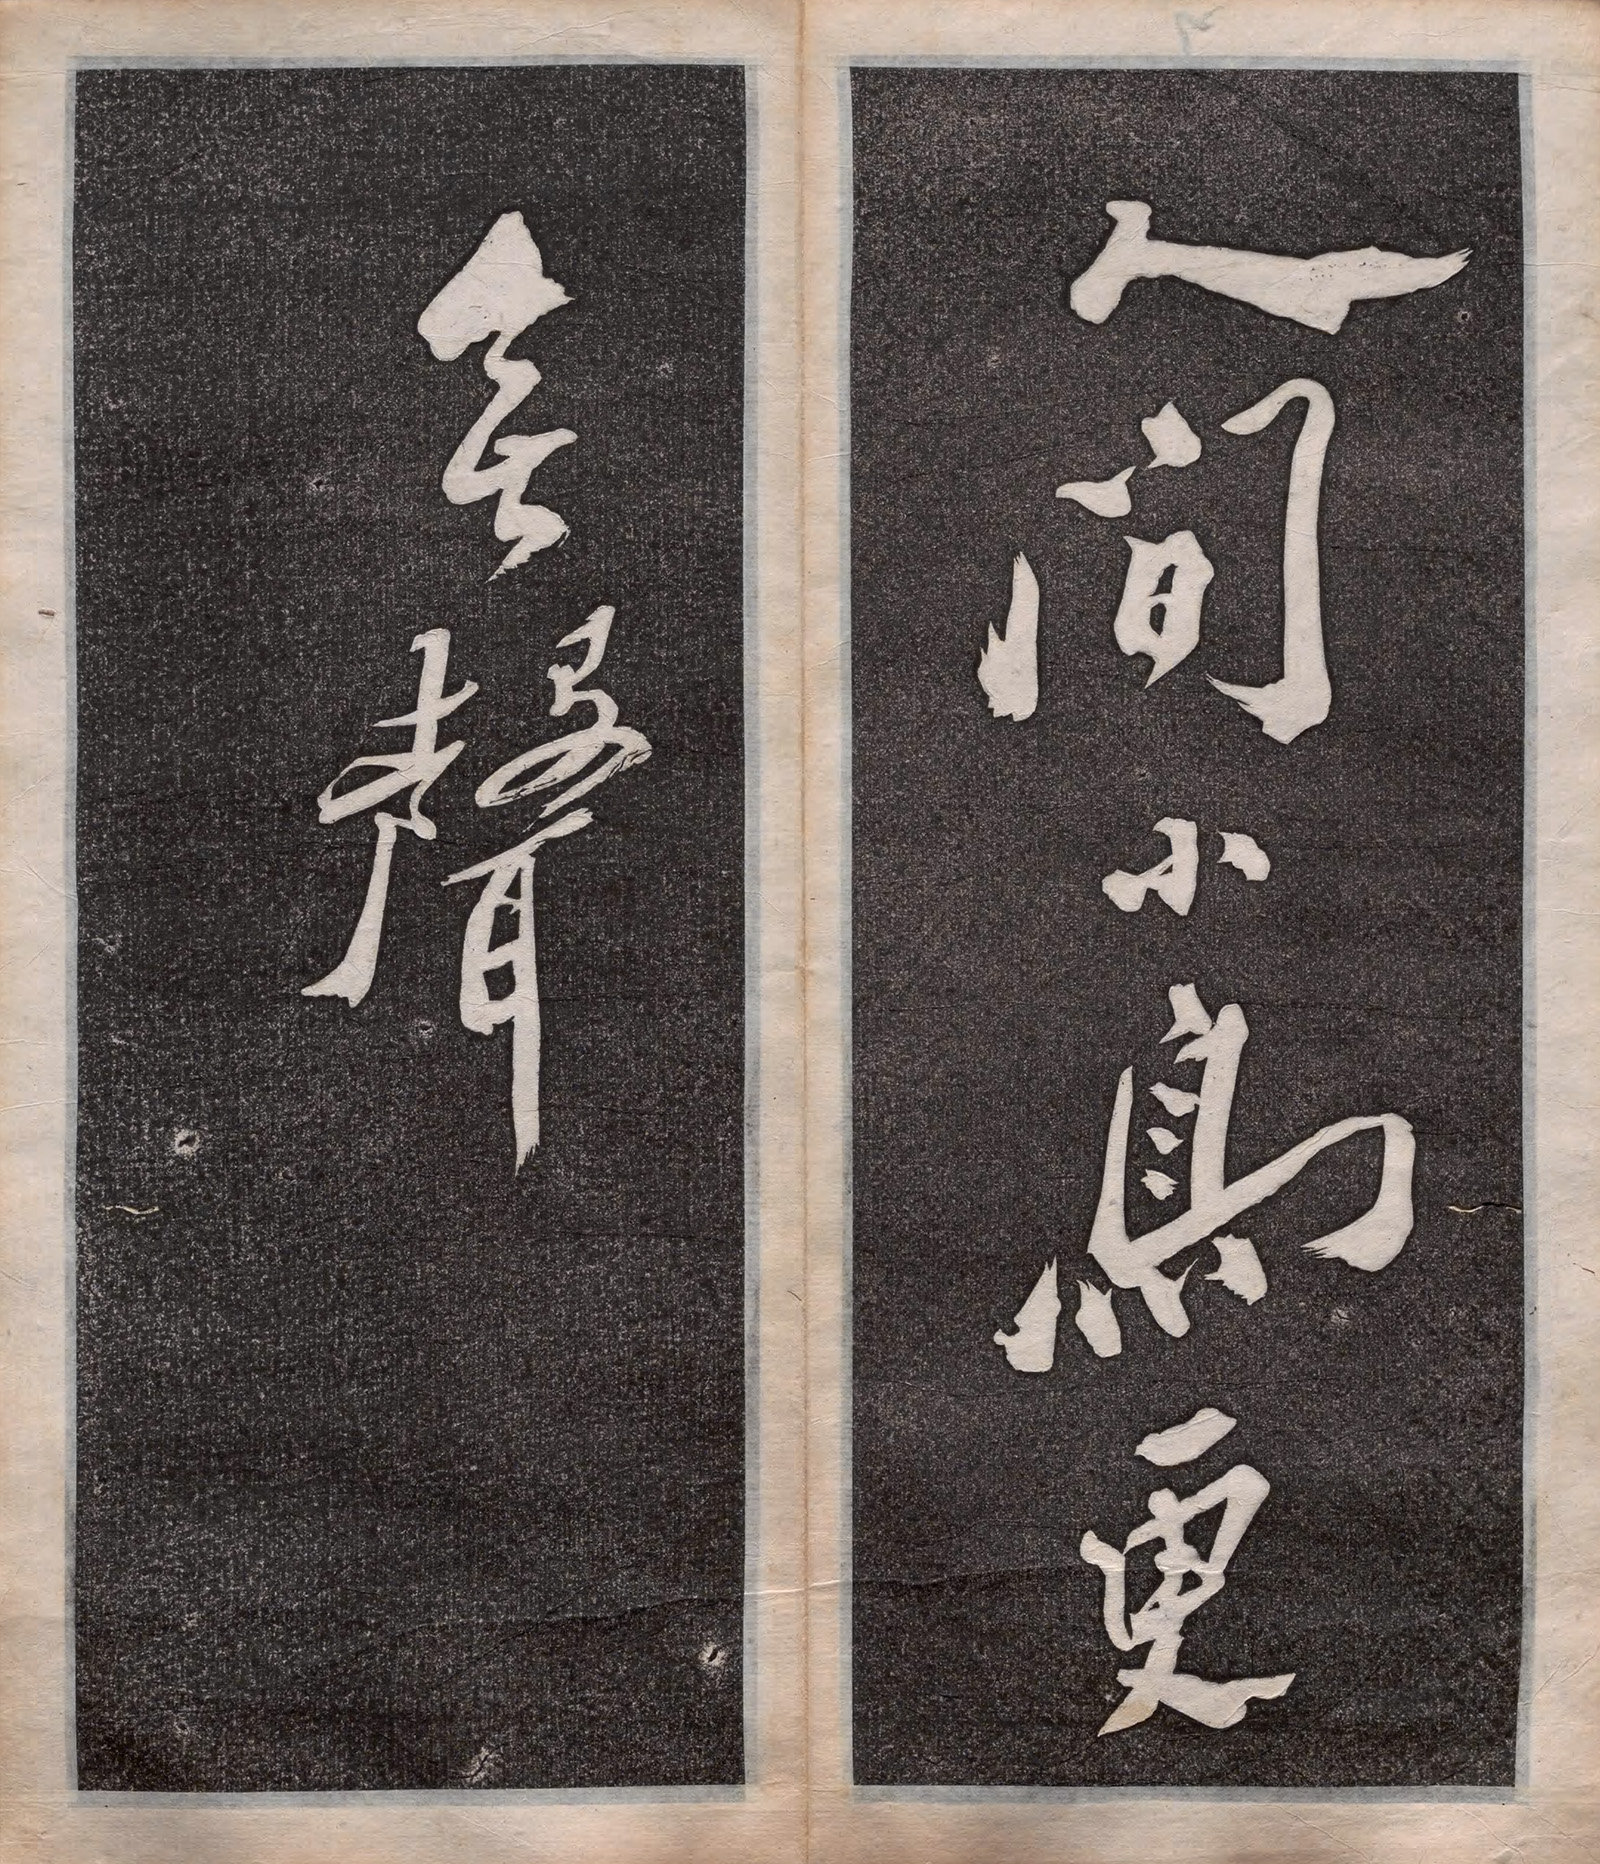 人間小鳥更
無聲